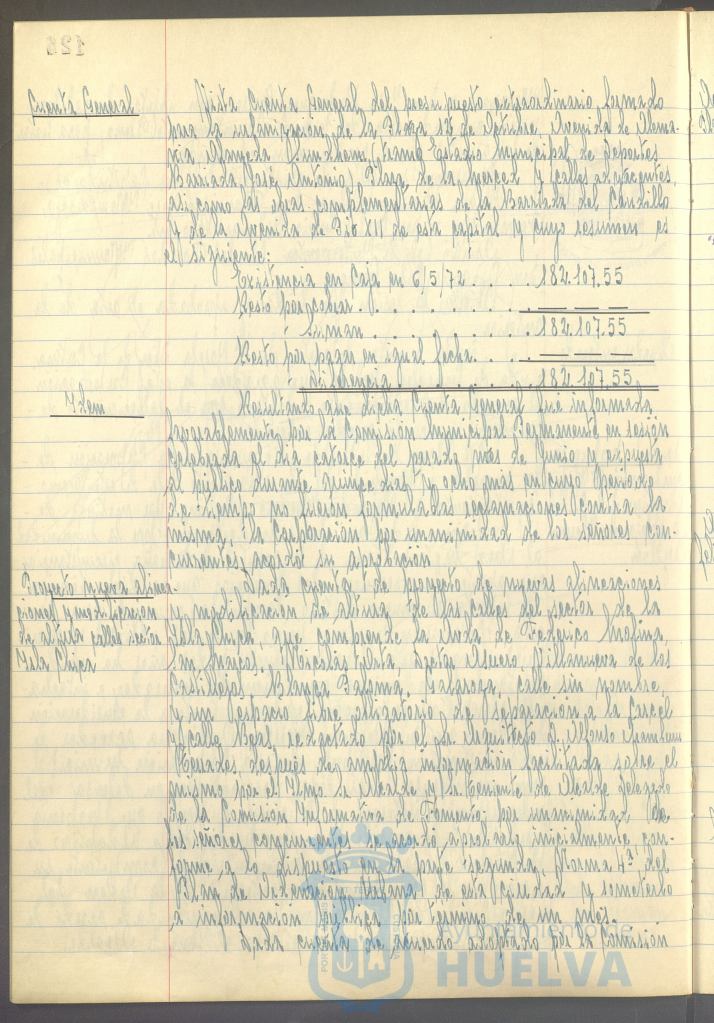 126
Cuenta General
Vista Cuenta General del presupuesto extraordinario formado
para la urbanización de la Plaza 12 de Octubre, Avenida de Alema-
nia Alameda Sundheim (tramo Estadio Municipal de deportes
Barriada José Antonio) Plaza de la Merced y calles adyacentes,
así como las obras complementarias de la Barriada del Carmen
y de la Avenida de Pio XII de esta capital y cuyo resumen es
el siguiente:
Existencia en Caja en 6/5/72 . . . . 182.107.55
Resto por cobrar . . . . . . . . — — —
Suman . . . . . . . . 182.107.55
Resto por pagar en igual fecha . . . — — —
Diferencia . . . . . . . 182.107.55
Idem
Resultando que dicha Cuenta General fué informada
favorablemente por la Comisión Municipal Permanente en sesión
celebrada el día catorce del pasado mes de Junio y expuesta
al público durante quince días y ocho más en cuyo período
de tiempo no fueron formuladas reclamaciones contra la
misma, la Corporación por unanimidad de los señores con-
currentes, acordó su aprobación.
Proyecto nueva alinea-
ciones y modificacion
de altura calles sector
Isla Chica
Dada cuenta de proyecto de nuevas alineaciones
y modificación de altura de las calles del sector de la
Isla Chica que comprende la Avda de Federico Molina,
San Marcos, Nicolás, Doctor Asuero, Villanueva de los
Castillejos, Blanca Paloma, Galaroza, calle sin nombre,
y un espacio libre obligatorio de separación a la Carcel
y calle Beas, redactado por el Sr. Arquitecto D. Alfonso
después de amplia información facilitada sobre el
mismo por el Ilmo Sr Alcalde y Sr Teniente de Alcalde Delegado
de la Comisión Informativa de Fomento, por unanimidad de
los señores concurrentes se acordó aprobarlo inicialmente, con-
forme a lo dispuesto en la parte segunda, Norma 4ª del
Plan de Ordenación Urbana de esta Ciudad y someterlo
a información pública por termino de un mes.
Dada cuenta de acuerdo adoptado por la Comisión
Ayuntamiento de
HUELVA